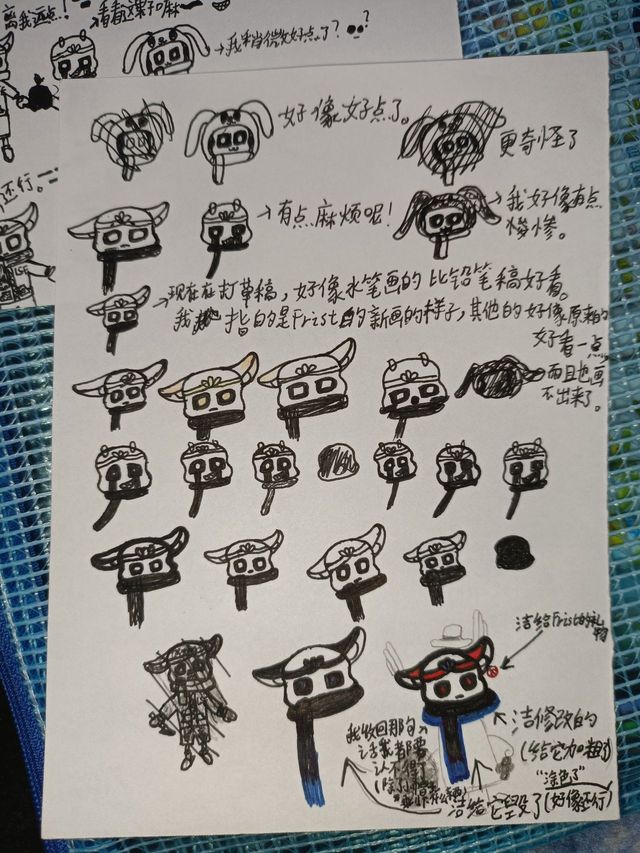 离我远点！
看看这梨子口麻
→我稍微好点了？
？
还行。
好像好点了。
更奇怪了
→有点麻烦呢！
→我好像有点
惨惨。
→现在在打草稿，好像水笔画的比铅笔稿好看。
我指的是Frist的新画的样子，其他的好像原来的
好看一点，
而且也画
不出来了。
洁给Frist的礼
物
洁修改的
(给它加粗了)
"涂色了"
我收回那句
话我都要
认不得了
洁给它毁了(好像还行)